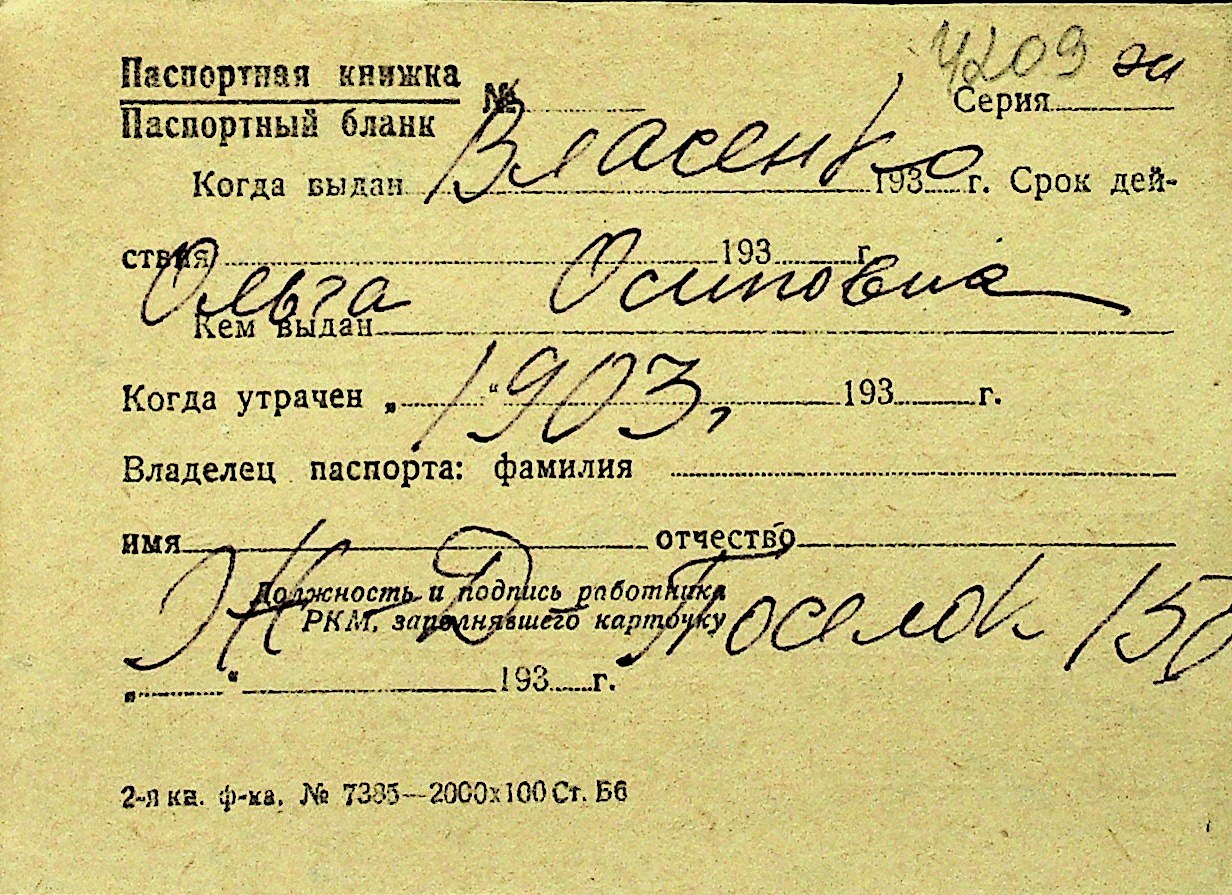 4209 эи
Паспортная книжка
Паспортный бланк
№ Серия
Власенко
Когда выдан 193 г. Срок дей-
ствия 193 г.
Ольга Осиповна
Кем выдан
1903,
Когда утрачен „ “ 193 г.
Владелец паспорта: фамилия
имя отчество
Ж-Д Поселок 150
Должность и подпись работника
РКМ, заполнявшего карточку
„ “ 193 г.
2-я кн. ф-ка, № 7385—2000х100 Ст. Б6